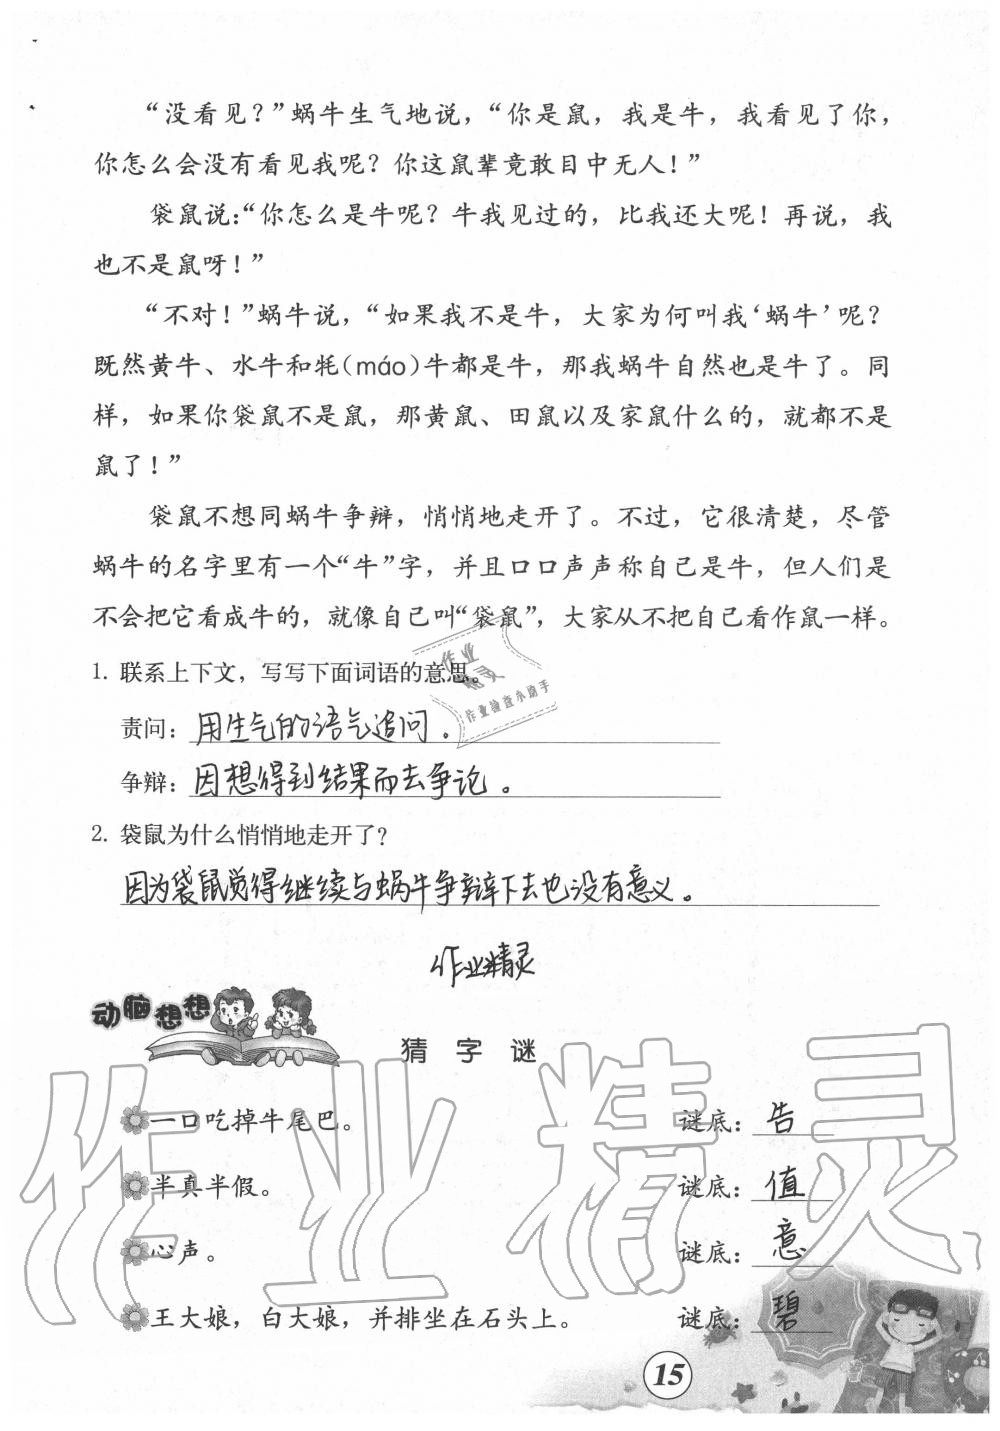 “没看见？”蜗牛生气地说，“你是鼠，我是牛，我看见了你，
你怎么会没有看见我呢？你这鼠辈竟敢目中无人！”
袋鼠说：“你怎么是牛呢？牛我见过的，比我还大呢！再说，我
也不是鼠呀！”
“不对！”蜗牛说，“如果我不是牛，大家为何叫我‘蜗牛’呢？
既然黄牛、水牛和牦(máo)牛都是牛，那我蜗牛自然也是牛了。同
样，如果你袋鼠不是鼠，那黄鼠、田鼠以及家鼠什么的，就都不是
鼠了！”
袋鼠不想同蜗牛争辩，悄悄地走开了。不过，它很清楚，尽管
蜗牛的名字里有一个“牛”字，并且口口声声称自己是牛，但人们是
不会把它看成牛的，就像自己叫“袋鼠”，大家从不把自己看作鼠一样。
1. 联系上下文，写写下面词语的意思。
作业精灵
作业检查小助手
责问：用生气的语气追问。
争辩：因想得到结果而去争论。
2. 袋鼠为什么悄悄地走开了？
因为袋鼠觉得继续与蜗牛争辩下去也没有意义。
作业精灵
动脑想想
猜字谜
作业精灵
一口吃掉牛尾巴。 谜底：告
半真半假。 谜底：值
心声。 谜底：意
王大娘，白大娘，并排坐在石头上。 谜底：碧
15